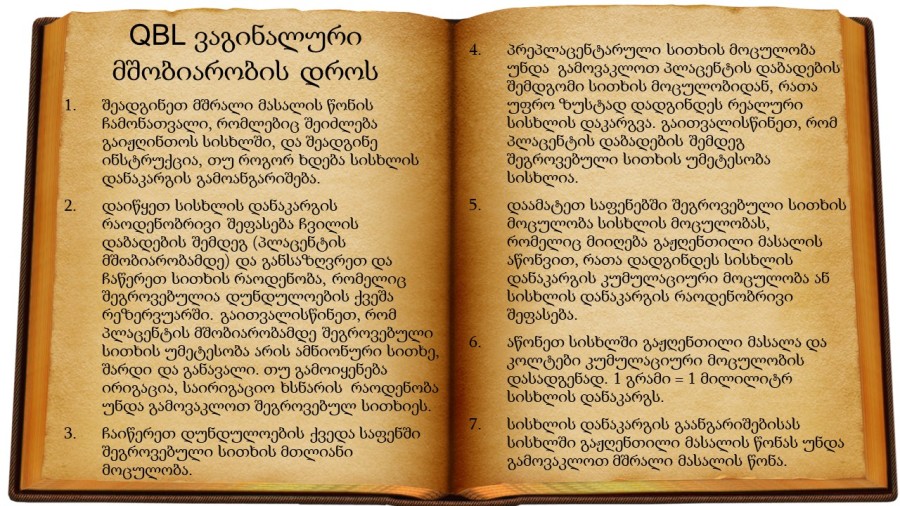 QBL ვაგინალური
მშობიარობის დროს
1. შეადგინეთ მშრალი მასალის წონის
ჩამონათვალი, რომლებიც შეიძლება
გაიჟღინთოს სისხლში, და შეადგინე
ინსტრუქცია, თუ როგორ ხდება სისხლის
დანაკარგის გამოანგარიშება.
2. დაიწყეთ სისხლის დანაკარგის
რაოდენობრივი შეფასება ჩვილის
დაბადების შემდეგ (პლაცენტის
მშობიარობამდე) და განსაზღვრეთ და
ჩაწერეთ სითხის რაოდენობა, რომელიც
შეგროვებულია დუნდულოების ქვეშა
რეზერვუარში. გაითვალისწინეთ, რომ
პლაცენტის მშობიარობამდე შეგროვებული
სითხის უმეტესობა არის ამნიონური სითხე,
შარდი და განავალი. თუ გამოიყენება
ირიგაცია, საირიგაციო ხსნარის რაოდენობა
უნდა გამოვაკლოთ შეგროვებულ სითხიეს.
3. ჩაიწერეთ დუნდულოების ქვედა საფენში
შეგროვებული სითხის მთლიანი
მოცულობა.
4. პრეპლაცენტარული სითხის მოცულობა
უნდა გამოვაკლოთ პლაცენტის დაბადების
შემდგომი სითხის მოცულობიდან, რათა
უფრო ზუსტად დადგინდეს რეალური
სისხლის დაკარგვა. გაითვალისწინეთ, რომ
პლაცენტის დაბადების შემდეგ
შეგროვებული სითხის უმეტესობა
სისხლია.
5. დაამატეთ საფენებში შეგროვებული სითხის
მოცულობა სისხლის მოცულობას,
რომელიც მიიღება გაჟღენთილი მასალის
აწონვით, რათა დადგინდეს სისხლის
დანაკარგის კუმულაციური მოცულობა ან
სისხლის დანაკარგის რაოდენობრივი
შეფასება.
6. აწონეთ სისხლში გაჟღენთილი მასალა და
კოლტები კუმულაციური მოცულობის
დასადგენად. 1 გრამი = 1 მილილიტრ
სისხლის დანაკარგს.
7. სისხლის დანაკარგის გაანგარიშებისას
სისხლში გაჟღენთილი მასალის წონას უნდა
გამოვაკლოთ მშრალი მასალის წონა.